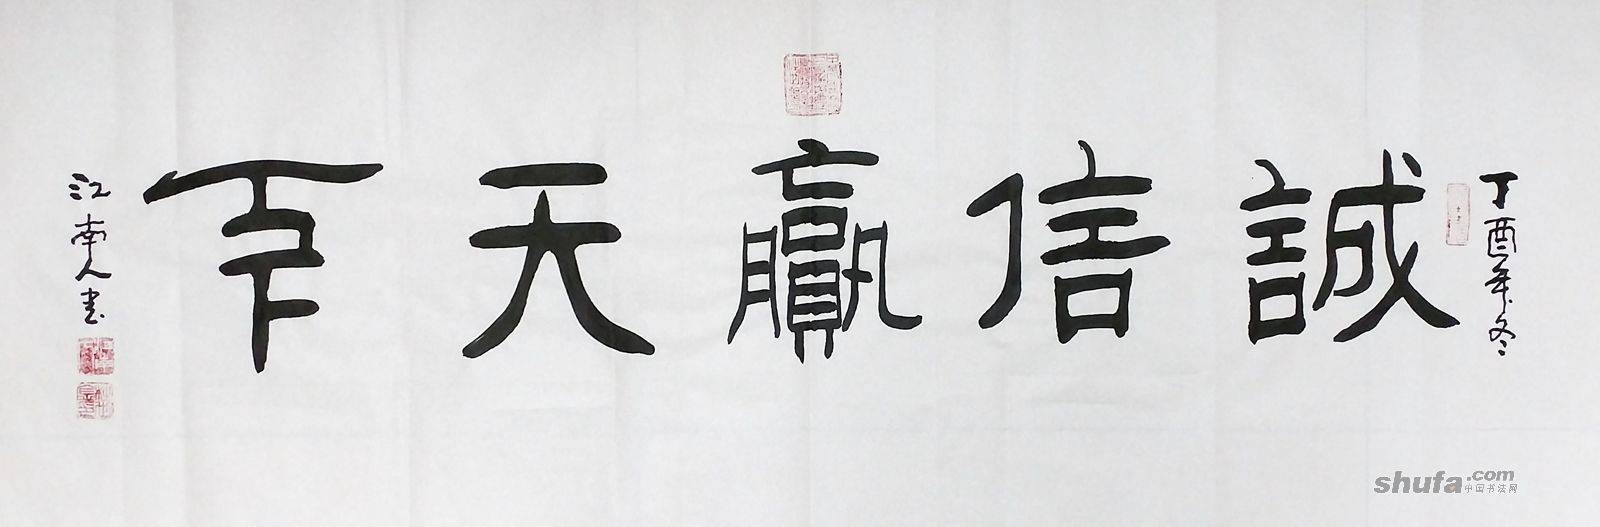 丁酉年冬
誠信贏天下
江南人书
shufa.com
中国书法网